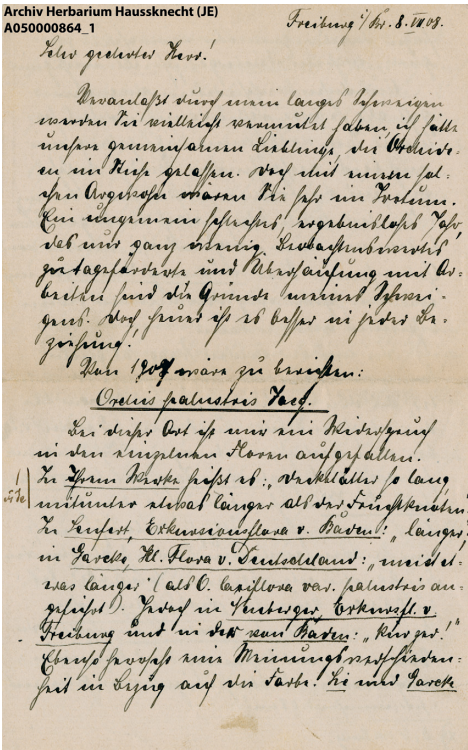 Archiv Herbarium Haussknecht (JE)
A050000864_1
Freiburg i/Br. 8. VII 08.
Sehr geehrter Herr!
Veranlaßt durch mein langes Schweigen
werden Sie vielleicht vermutet haben, ich hätte
unsere gemeinsamen Lieblinge, die Orchide-
en im Stiche gelassen. Doch mit einem sol-
chen Argwohn wären Sie sehr im Irrtum.
Ein ungemein schlechtes, ergebnisloses Jahr,
das nur ganz wenig Beobachtenswertes
zutageförderte und Überhäufung mit Ar-
beiten sind die Gründe meines Schwei-
gens. Doch heuer ist es besser in jeder Be-
ziehung!
Von 1907 wäre zu berichten:
Orchis palustris Jacq.
Bei dieser Art ist mir ein Widerspruch
in den einzelnen Floren aufgefallen.
In Ihrem Werke heißt es: „Deckblätter so lang,
mitunter etwas länger als der Fruchtknoten."
In Seubert, Exkursionsflora v. Baden: „länger",
in Garcke, Ill. Flora v. Deutschland: „meist et-
was länger" (als O. laxiflora var. palustris an-
geführt). Jedoch in Neuberger, Exkursfl. v.
Freiburg und in der von Baden: „kürzer!"
Ebenso herrscht eine Meinungsverschieden-
heit in Bezug auf die Farbe. Sie und Garcke